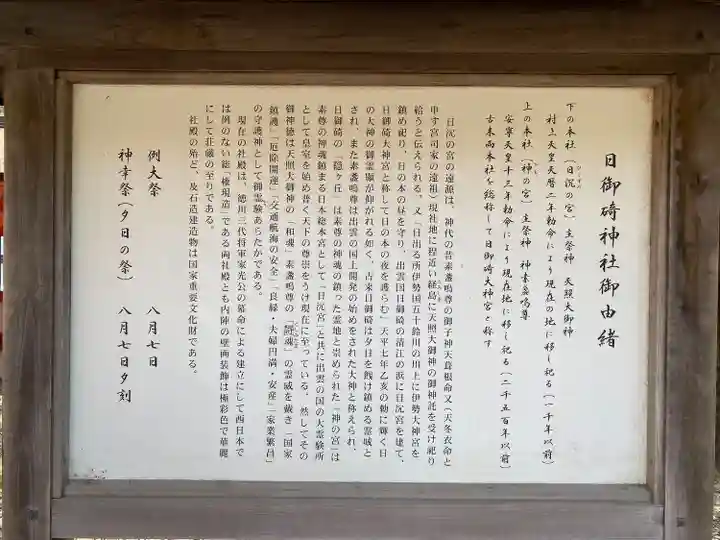 日御碕神社御由緒
下の本社（日沉の宮）主祭神　天照大御神
村上天皇天暦二年勅命により現在の地に移し祀る（一千年以前）
上の本社（神の宮）主祭神　神素盞嗚尊
安寧天皇十三年勅命により現在地に移し祀る（二千五百年以前）
古来両本社を総称して日御碕大神宮と称す
日沉の宮の遠源は、神代の昔素盞嗚尊の御子神天葺根命又（天冬衣命と
申す宮司家の遠祖）現社地に程近い経島に天照大御神の御神託を受け祀り
給うと伝えられる。又「日出る所伊勢国五十鈴川の川上に伊勢大神宮を
鎮め祀り、日の本の昼を守り、出雲国日御碕の清江の浜に日沉宮を建て、
日御碕大神宮と称して日の本の夜を護らむ」天平七年乙亥の勅に輝く日
の大神の御霊顕が仰がれる如く、古来日御碕は夕日を餞け鎮める霊域と
され、また素盞嗚尊は出雲の国土開発の始めをされた大神と称えられ、
日御碕の「隠ヶ丘」は素尊の神魂の鎮った霊地と崇められた「神の宮」は
素尊の神魂鎮まる日本総本宮として「日沉宮」と共に出雲の国の大霊験所
として皇室を始め普く天下の尊崇をうけ現在に至っている。然してその
御神徳は天照大御神の「和魂」素盞嗚尊の「謌魂」の霊威を戴き「国家
鎮護」「厄除開運」「交通航海の安全」「良縁・夫婦円満・安産」「家業繁昌」
の守護神として御霊験あらたかである。
現在の社殿は、徳川三代将軍家光公の幕命による建立にして西日本で
は例のない総「権現造」である両社殿とも内陣の壁画装飾は極彩色で華麗
にして荘厳の至りである。
社殿の殆ど、及石造建造物は国家重要文化財である。
例大祭　　　　　　八月七日
神幸祭（夕日の祭）　八月七日夕刻